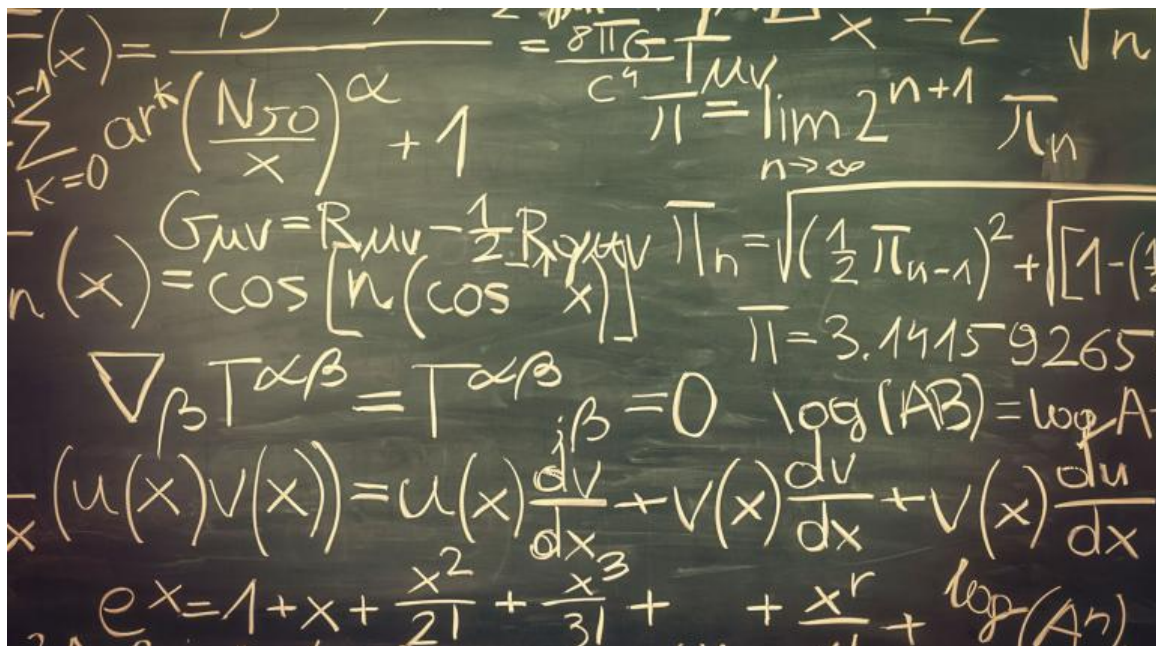 (x) =
= 8πG/c⁴ Tμν
x
√n
n-1 ∑ k=0 ar^k (N50/x)^α + 1
π = lim n→∞ 2^(n+1) πn
Gμν = Rμν - 1/2 R
πn = √(1/2 πn-1)² + √[1-(1/2
n(x) = cos[n(cos x)]
π = 3.14159265
∇β T^αβ = T^αβ jβ = 0
log(AB) = log A
x (u(x)v(x)) = u(x) dv/dx + v(x) dv/dx + v(x) du/dx
e^x = 1 + x + x²/2! + x³/3! + + x^r + log(Aⁿ)